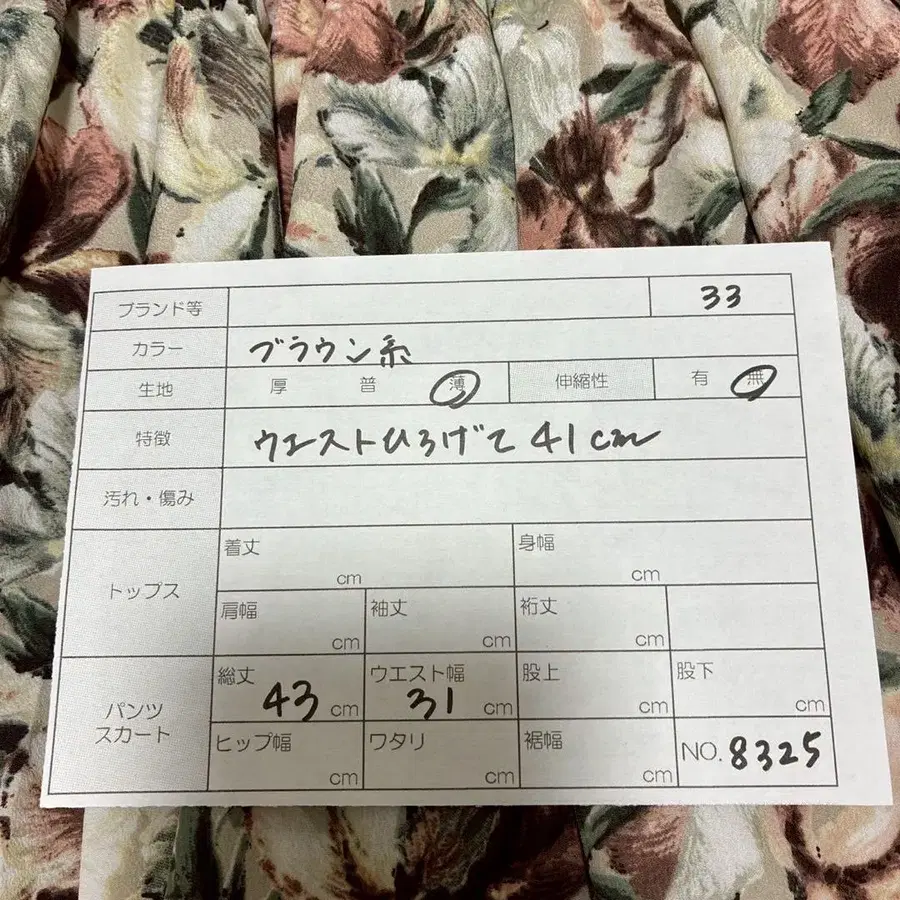 ブランド等 33
カラー ブラウン系
生地 厚 普 薄 伸縮性 有 無
特徴 ウエストひろげて41cm
汚れ・傷み
トップス 着丈 cm 身幅 cm
肩幅 cm 袖丈 cm 裄丈 cm
パンツ スカート 総丈 43 cm ウエスト幅 31 cm 股上 cm 股下 cm
ヒップ幅 cm ワタリ cm 裾幅 cm NO. 8325